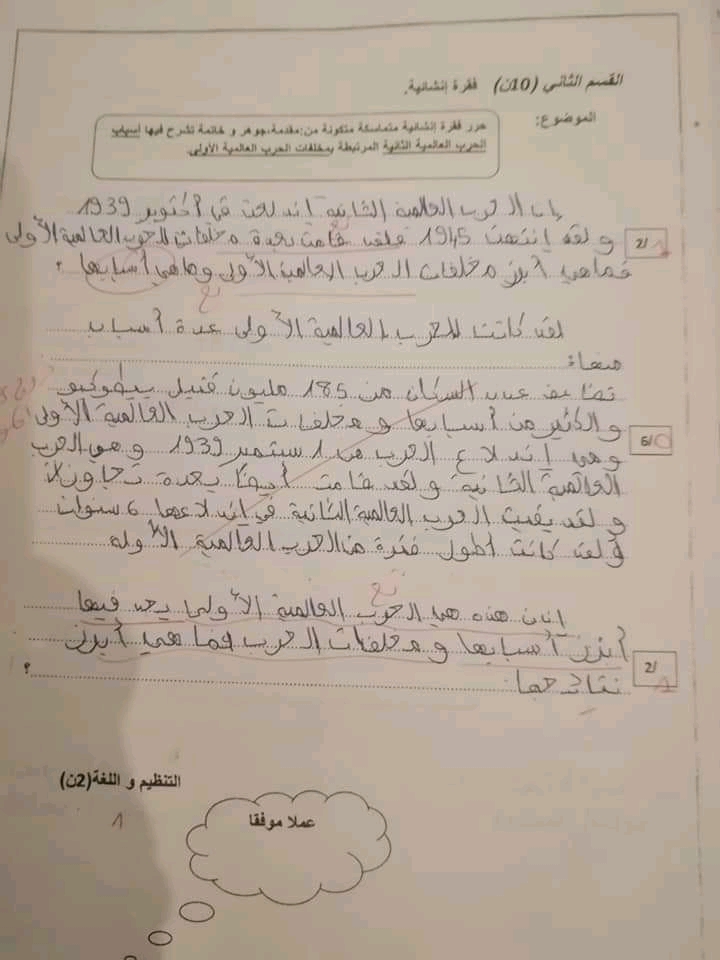 القسم الثاني (10ن) فقرة إنشائية.
الموضوع:
حرر فقرة إنشائية متماسكة متكونة من:مقدمة،جوهر و خاتمة تشرح فيها أسباب
الحرب العالمية الثانية المرتبطة بمخلفات الحرب العالمية الأولى.
إن الحرب العالمية الثانية إندلعت في أكتوبر 1939
و لقد إنتهت 1945 فلقد قامت بعدة مخلفات للحرب العالمية الأولى
2/ 1
فماهي أبرز مخلفات الحرب العالمية الأولى وماهي أسبابها ؟
لقد كانت للحرب العالمية الأولى عدة أسباب
منها:
عدد السكان من 185 مليون
والكثير من أسبابها و مخلفات الحرب العالمية الأولى
6/0
وهي إندلاع الحرب من 1 سبتمبر 1939 وهي الحرب
العالمية الثانية ولقد قامت أيضا بعدة
ولقد بقيت الحرب العالمية الثانية في إندلاعها 6 سنوات
ولقد كانت أطول فترة من الحرب العالمية الأوله
إذن هذه هي الحرب العالمية الأولى فيها
أبرز أسبابها و مخلفات الحرب فما هي أبرز
2/ 1
نتائجها ؟
التنظيم و اللغة(2ن)
1
عملا موفقا